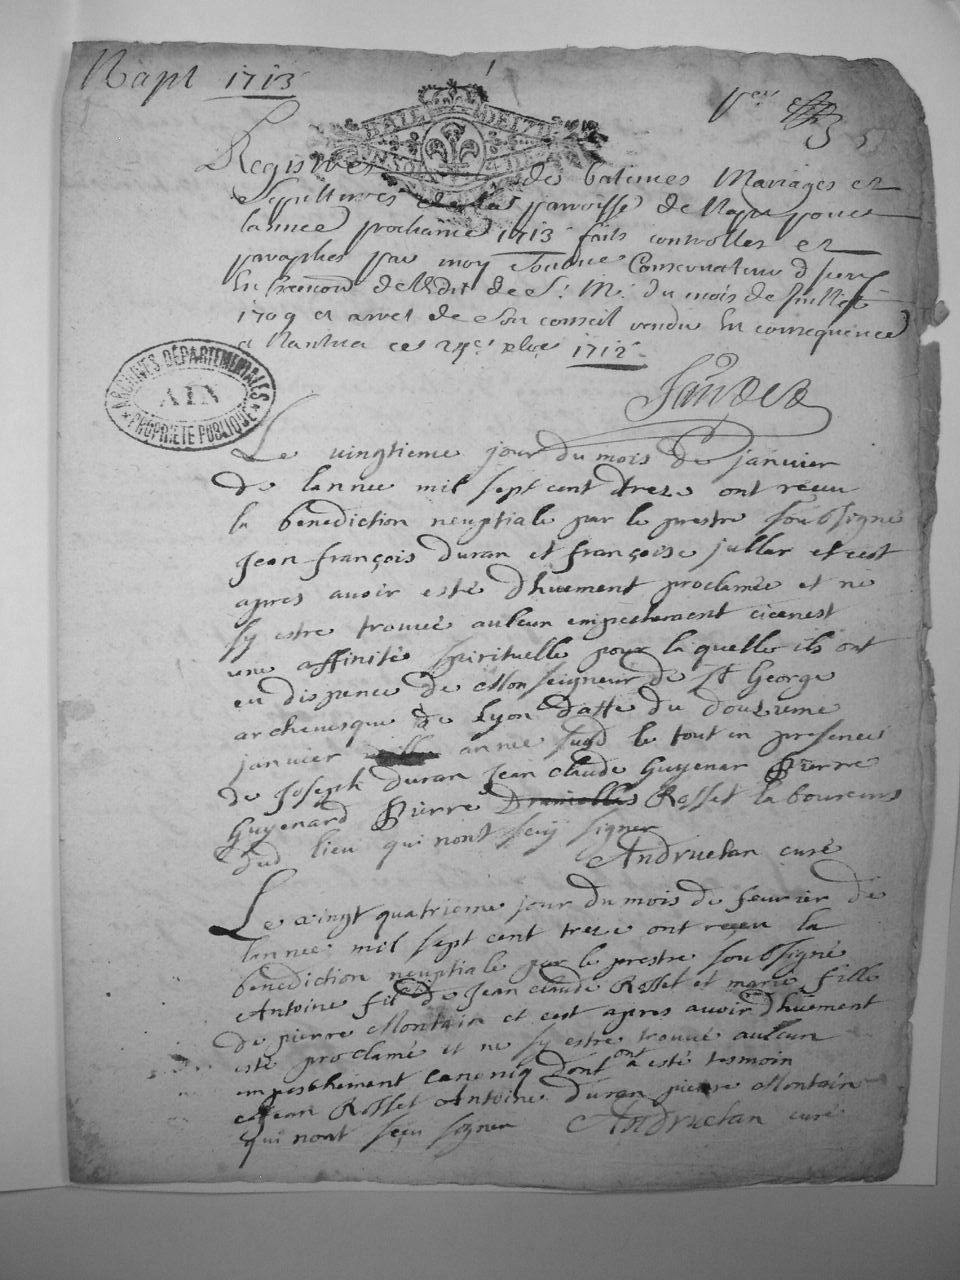 Napt 1713
Registre des batemes Mariages et
Sepultures de la parroisse de Napt pour
lannee prochaine 1713 faits controllez et
paraphés par moy Conservateur
de Ledit de S. M. du mois de Juillet
1709 et arret de son conseil rendu En consequence
a Nantua ce 1712
ARCHIVES DÉPARTEMENTALES
AIN
PROPRIÉTÉ PUBLIQUE
Le vingtieme jour du mois de janvier
de lannee mil sept cent treze ont receu
la benediction neuptiale par le prestre soubsigné
Jean françois duran et françoise juller et cest
apres avoir esté dhuement proclamée et ne
sy estre trouvé aulcun empechement
une affinité spirituelle pour la quelle ils ont
eu dispence de Monseigneur de St George
archevesque de Lyon datte du douzieme
janvier année susd le tout en presence
de Joseph duran Jean claude Guyenar Pierre
Guyenard Pierre Rosset laboureurs
dud lieu qui nont seu signer
Andruetan curé
Le vingt quatrieme jour du mois de fevrier de
lannee mil sept cent treze ont reçeu la
benediction neuptiale par le prestre soubsigné
Antoine fil de Jean claude Rosset et marie fille
de pierre Montain et cest apres avoir dhuement
esté proclamé et ne sy estre trouvé aulcun
empeschement canoniq dont ont esté tesmoin
Jean Rosset Antoine duran pierre Montain
qui nont seçu signer Andruetan curé